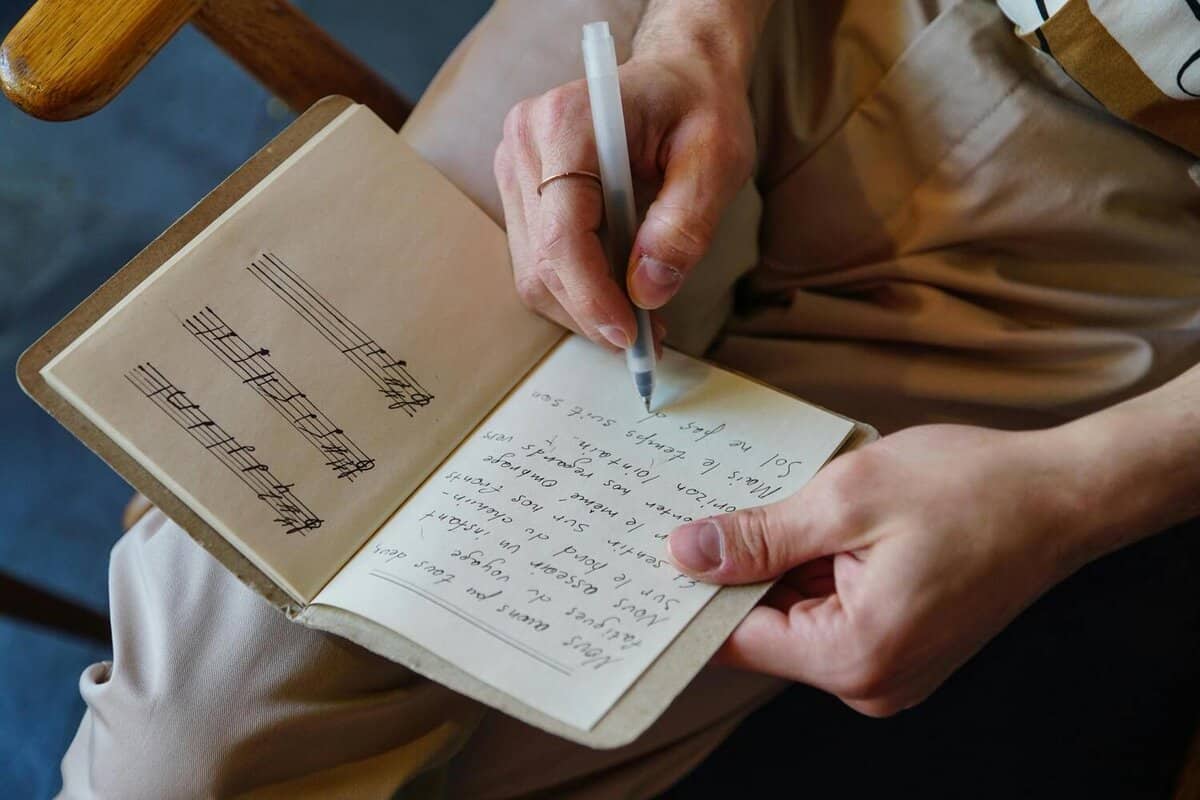 Nous avons pu tous deux,
fatigues du voyage
Nous asseoir un instant
sur le bord du chemin-
sentir sur nos fronts
le même ombrage
nos regards vers
lointain.
Mais le temps suit son
ne pas